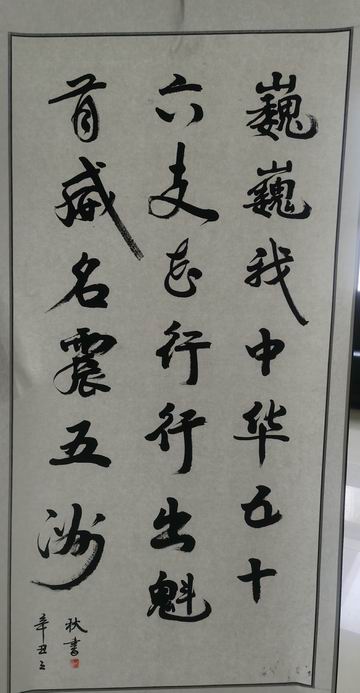 巍巍我中华五十
六支花行行出魁
首威名震五洲
辛丑之
秋書